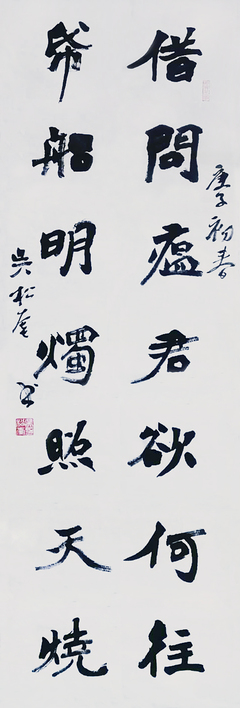 庚子初春
借問瘟君欲何往
帋船明燭照天燒
吴松 书